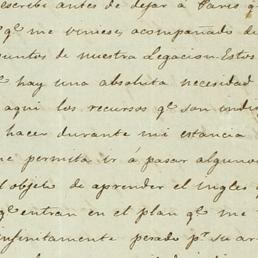 escribi antes de dejar á Paris q
q.e me vinieses acompañado de
untos de nuestra Legacion. Estos
hay una absoluta necesidad
aqui los recursos q.e son indis
hacer durante mi estancia
me permita ir á pasar algunos
objeto de aprender el ingles
q.e entran en el plan q.e me
infinitamente pesado p.r su ar